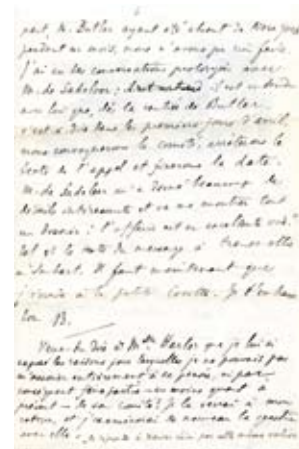 part, M. Butler ayant été absent de New York
pendant un mois, nous n'avons pu rien faire.
J'ai eu des conversations prolongées avec
M. de Sabolow; il est entendu
avec lui que, dès la rentrée de Butler,
c'est à dire dans les premiers jours d'avril,
nous convoquerons le comité, arrêterons le
texte de l'appel et fixerons la date.
M. de m'a donné beaucoup de
détails intéressants et va me montrer tout
un dossier; l'affaire est en excellente voie.
et le reste du message à
Il faut maintenant que
j'écrive à la petite Je t'embrasse
ton B.
Veux-tu dire à Mlle que je lui ai
exposé les raisons pour lesquelles je ne pouvais pas
m'associer entièrement à sa pensée, ni par
conséquent faire partie – du moins quant à
présent – de son comité? Je la verrai à mon
retour et j'examinerai de nouveau la question
avec elle.